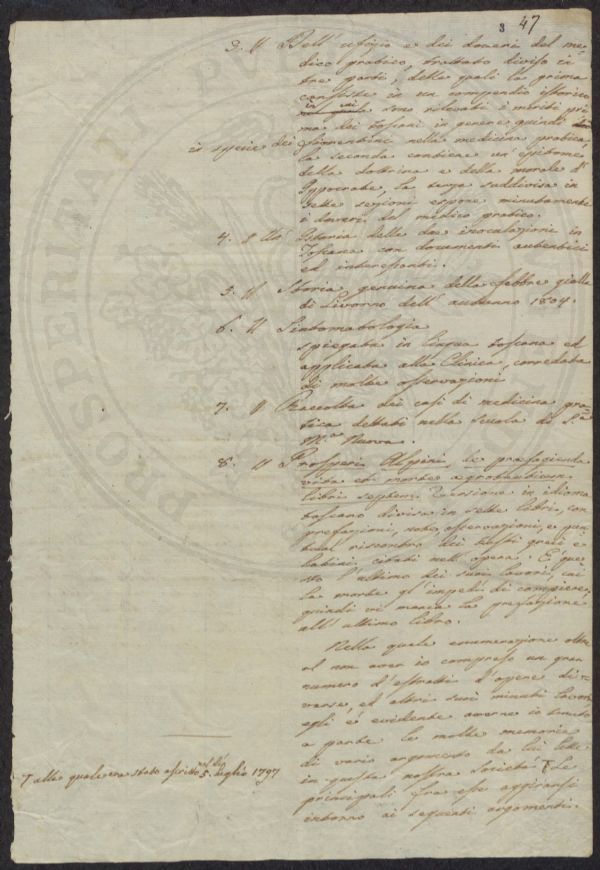 8 47
3. Dell' ufizio e dei doveri del me-
dico pratico, trattato diviso in
tre parti, delle quali la prima
consiste in un compendio istorico
in cui sono rilevati i meriti pri
ma dei Toscani in genere, quindi
in specie dei Fiorentini nella medicina pratica,
la seconda contiene un' epitome
della dottrina e della morale d'
Ippocrate, la terza suddivisa in
sette sezioni espone minutamente
i doveri del medico pratico.
4. Istoria delle due inoculazioni in
Toscana con documenti autentici
ed interessanti.
5. Storia genuina della febbre gialla
di Livorno dell' autunno 1804.
6. Sintomatologia
spiegata in lingua toscana ed
applicata alla Clinica, corredata
di molte osservazioni
7. Raccolta dei casi di medicina pra-
tica dettati nella Scuola di S.a
M.a Nuova.
8. Prosperi Alpini, de praesagienda
vita et morte aegrotantium
libri septem. Versione in idioma
toscano divisa in sette libri, con
prefazioni, note, osservazioni, e
riscontro dei testi greci e
latini, citati nell' opera. È que
sto l' ultimo dei suoi lavori, cui
la morte gl' impedì di compiere,
quindi vi manca la prefazione
all' ultimo libro.
Nella quale enumerazione oltre
al non aver io compreso un gran
numero d' estratti d' opere di-
verse, ed altri suoi minuti lavori
egli è evidente averne io
a parte le molte memorie
di vario argomento da lui lette
in questa nostra Società. Le
principali fra esse aggiransi
intorno ai seguenti argomenti.
alla quale era stato ascritto nel dì 5. luglio 1797
PROSPERITAT PUBLIC